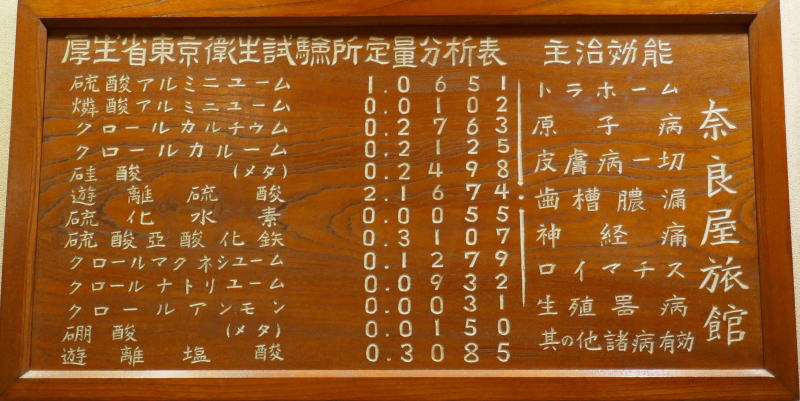 厚生省東京衛生試験所定量分析表
硫酸アルミニユーム 1.0651
燐酸アルミニユーム 0.0102
クロールカルチウム 0.2763
クロールカルーム 0.2125
硅酸(メタ) 0.2498
遊離硫酸 2.1674
硫化水素 0.0055
硫酸亞酸化鉄 0.3107
クロールマクネシユーム 0.1279
クロールナトリユーム 0.0932
クロールアンモン 0.0031
硼酸(メタ) 0.0150
遊離塩酸 0.3085
主治効能
トラホーム
原子病
皮膚病一切
歯槽膿漏
神経痛
ロイマチス
生殖器病
其の他諸病有効
奈良屋旅館